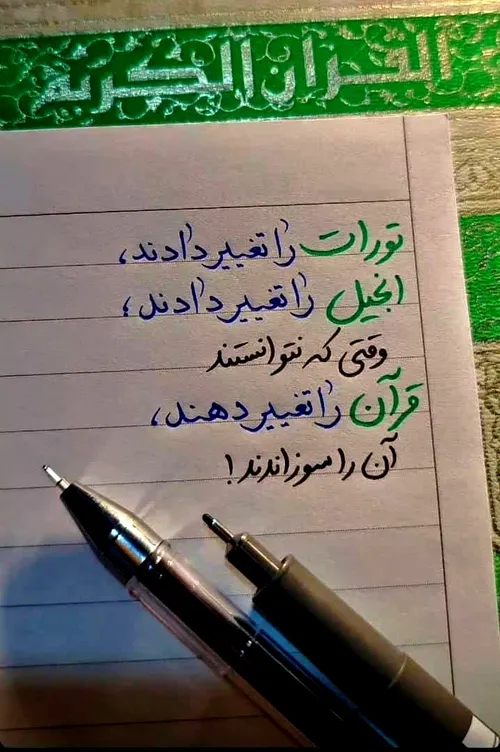 القرآن الكريم
تورات را تغییر دادند،
انجیل را تغییر دادند؛
وقتی که نتوانستند
قرآن را تغییر دهند،
آن را سوزاندند!